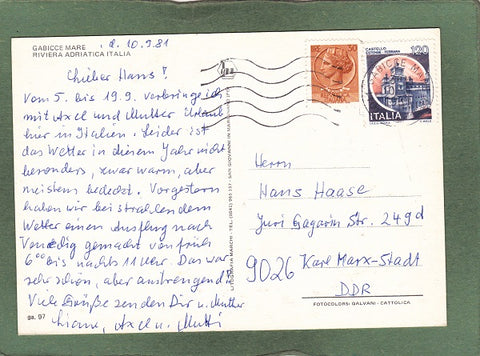 GABICCE MARE
RIVIERA ADRIATICA ITALIA
d. 10.9.81
Lieber Hans!
Vom 5. bis 19.9. verbringe ich
mit Axel und Mutter Urlaub
hier in Italien. Leider ist
das Wetter in diesem Jahr nicht
besonders, zwar warm, aber
meistens bedeckt. Vorgestern
haben wir bei strahlendem
Wetter einen Ausflug nach
Venedig gemacht von früh
6⁰⁰ bis nachts 11 Uhr. Das war
sehr schön, aber anstrengend!
Viele Grüße senden Dir u. Mutter
Liane, Axel u. Mutti
ga. 97
50
ITALIA
CASTELLO
120
ITALIA
GABICCE MARE
Herrn
Hans Haase
Juri Gagarin Str. 249d
9026 Karl-Marx-Stadt
DDR
FOTOCOLORSI GALVANI - CATTOLICA